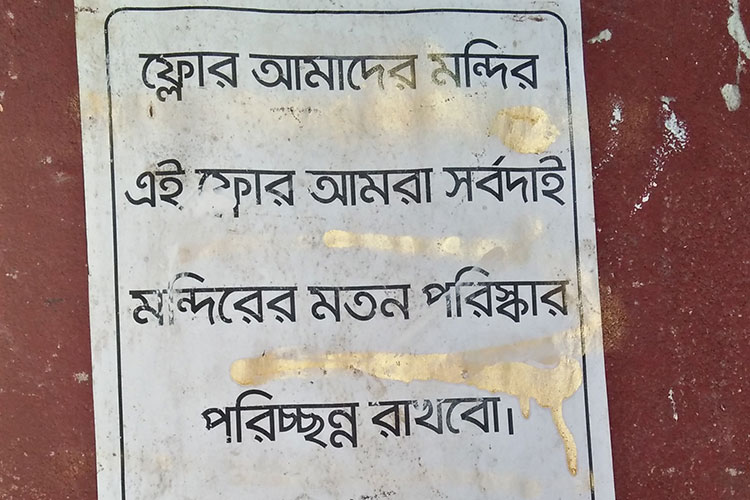 ফ্লোর আমাদের মন্দির
এই ফ্লোর আমরা সর্বদাই
মন্দিরের মতন পরিস্কার
পরিচ্ছন্ন রাখবো।